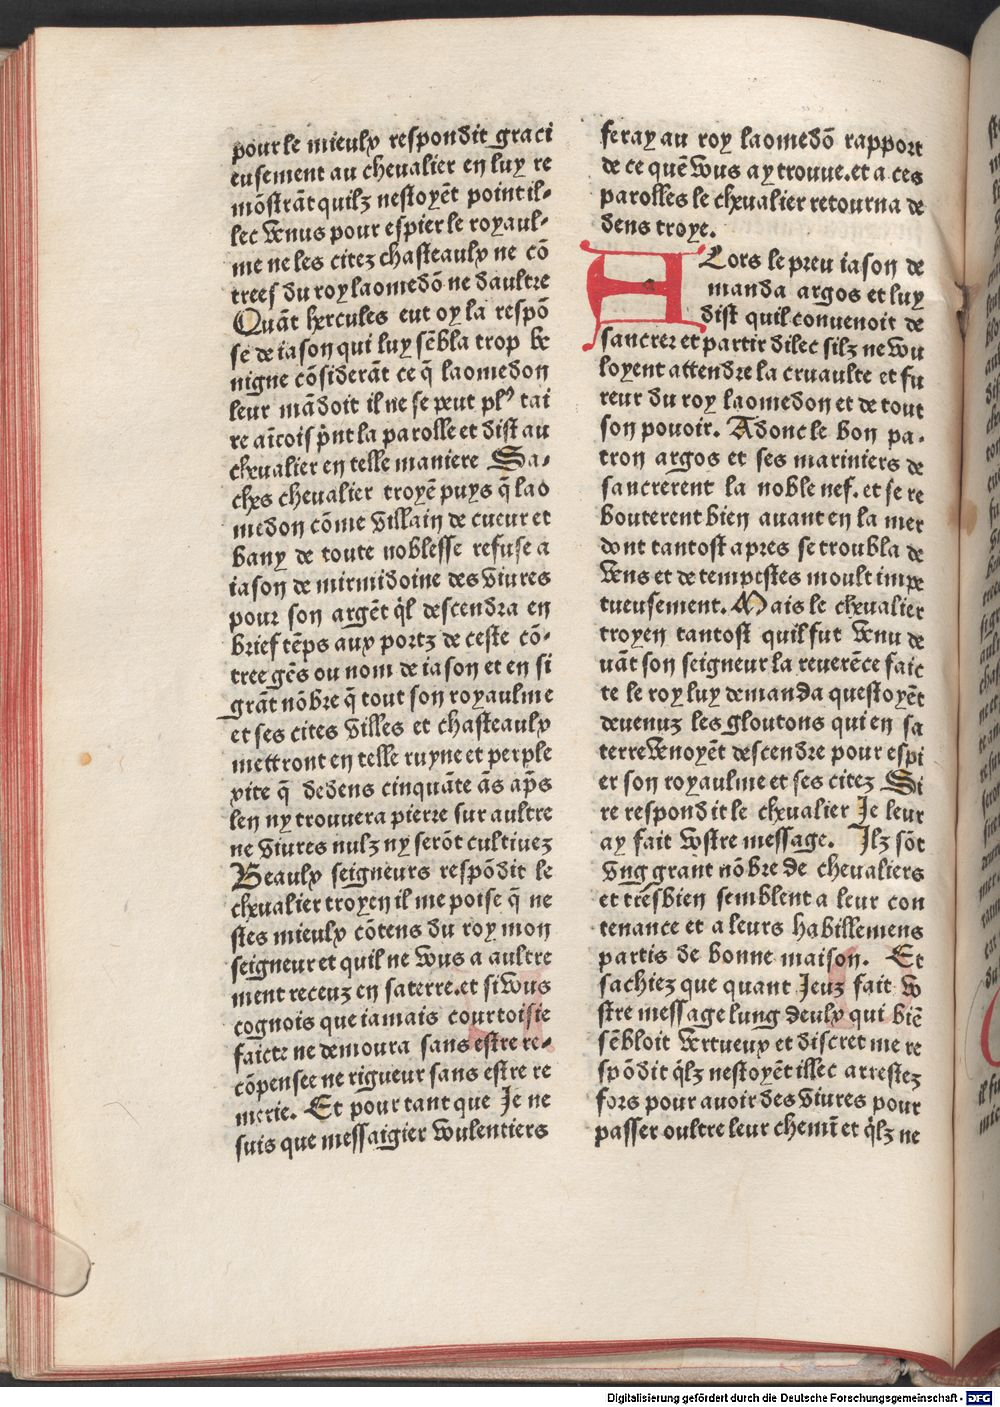 pour le mieulx respondit graci
eusement au chevalier en luy re
mõstrãt quilz nestoyẽt point il-
lec venus pour espier le royaul-
me ne les citez chasteaulx ne cõ
trees du roy laomedõ ne daultre
Quãt hercules eut oy la respõ
se de iason qui luy sẽbla trop be
nigne cõsiderãt ce q̃ laomedon
leur mãdoit il ne se peut plꝰ tai
re aĩcois p̃nt la parolle et dist au
chevalier en telle maniere Sa-
ches chevalier troyẽ puys q̃ lao
medon cõme villain de cueur et
bany de toute noblesse refuse a
iason de mirmidoine des viures
pour son argẽt q̃l descendra en
brief tẽps aux portz de ceste cõ-
tree gẽs ou nom de iason et en si
grãt nõbre q̃ tout son royaulme
et ses cites villes et chasteaulx
mettront en telle ruyne et perple
xite q̃ dedens cinquãte ãs ap̃s
len ny trouuera pierre sur aultre
ne viures nulz ny serõt cultiuez
Beaulx seigneurs respõdit le
chevalier troyen il me poise q̃ ne
stes mieulx cõtens du roy mon
seigneur et quil ne vous a aultre
ment receuz en sa terre. et si vous
cognois que iamais courtoisie
faicte ne demoura sans estre re-
cõpensee ne rigueur sans estre re
merie. Et pour tant que Je ne
suis que messaigier voulentiers
feray au roy laomedõ rapport
de ce quẽ vous ay trouue. et a ces
parolles le chevalier retourna de
dens troye.
A Lors le preu iason de
manda argos et luy
dist quil conuenoit de
sancrer et partir dilec silz ne vou
loyent attendre la cruaulte et fu
reur du roy laomedon et de tout
son pouoir. Adonc le bon pa-
tron argos et ses mariniers de
sancrerent la noble nef. et se re
bouterent bien auant en la mer
dont tantost apres se troubla de
vens et de tempestes moult impe
tueusement. Mais le chevalier
troyen tantost quil fut venu de
uãt son seigneur la reuerẽce faic
te le roy luy demanda questoyẽt
deuenuz les gloutons qui en sa
terre venoyẽt descendre pour espi
er son royaulme et ses citez Si
re respondit le chevalier Je leur
ay fait vostre message. Ilz sõt
vng grant nõbre de chevaliers
et tresbien semblent a leur con
tenance et a leurs habillemens
partis de bonne maison. Et
sachiez que quant Jeuz fait vo
stre message lung deulx qui biẽ
sẽbloit vertueux et discret me re
spõdit q̃lz nestoyẽt illec arrestez
fors pour auoir des viures pour
passer oultre leur chemĩ et q̃lz ne
Digitalisierung gefördert durch die Deutsche Forschungsgemeinschaft - DFG